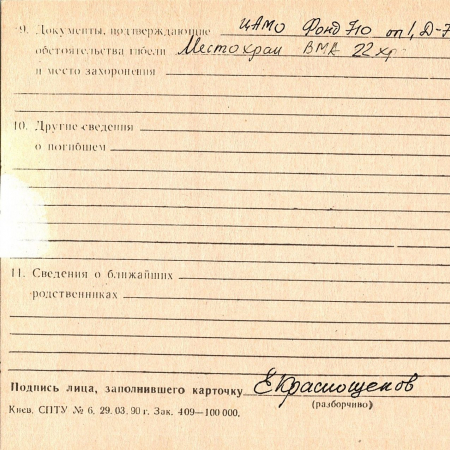 9. Документы, подтверждающие ЦАМО Фонд 710 оп 1, Д-7
обстоятельства гибели Местохран ВМА 22 хр
и место захоронения
10. Другие сведения
о погибшем
11. Сведения о ближайших
родственниках
Подпись лица, заполнившего карточку Е Краснощеков
(разборчиво)
Киев. СПТУ № 6. 29.03.90 г. Зак. 409—100 000.